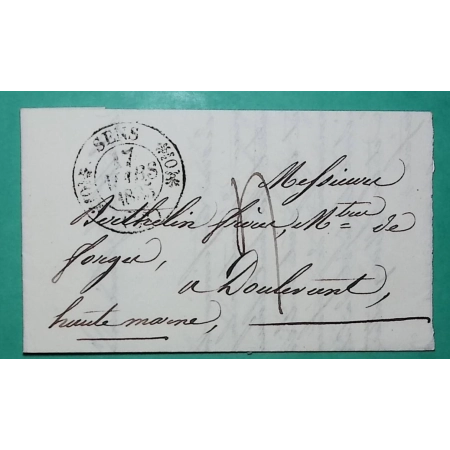 SENS
17
MARS
Messieurs
Berthelin frères, Mtres de
forges,
a Doulevant,
haute marne,